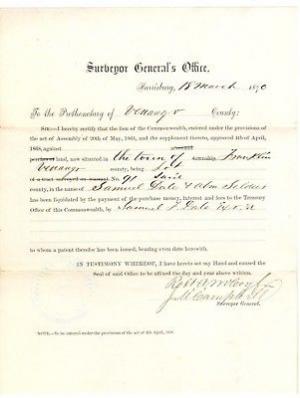 Surveyor General's Office.
Harrisburg, 18 March 1870
To the Prothonotary of Venango County:
SIR:—I hereby certify that the lien of the Commonwealth, entered under the provisions of
the act of Assembly 20th of May, 1864, and the supplement thereto, approved 4th of April,
1868, against
land, now situated in the town of township, Franklin
Venango county, being Lot
No. 91 said
county, in the name of Samuel Dale
has been liquidated by the payment of the purchase money, interest and fees to the Treasury
Office of this Commonwealth, by Samuel F Dale
to whom a patent therefor has been issued, bearing even date herewith.
IN TESTIMONY WHEREOF, I have hereto set my Hand and caused the
Seal of said Office to be affixed the day and year above written.
J M Campbell
Surveyor General.
NOTE.—To be entered under the provisions of the act of 4th April, 1868.